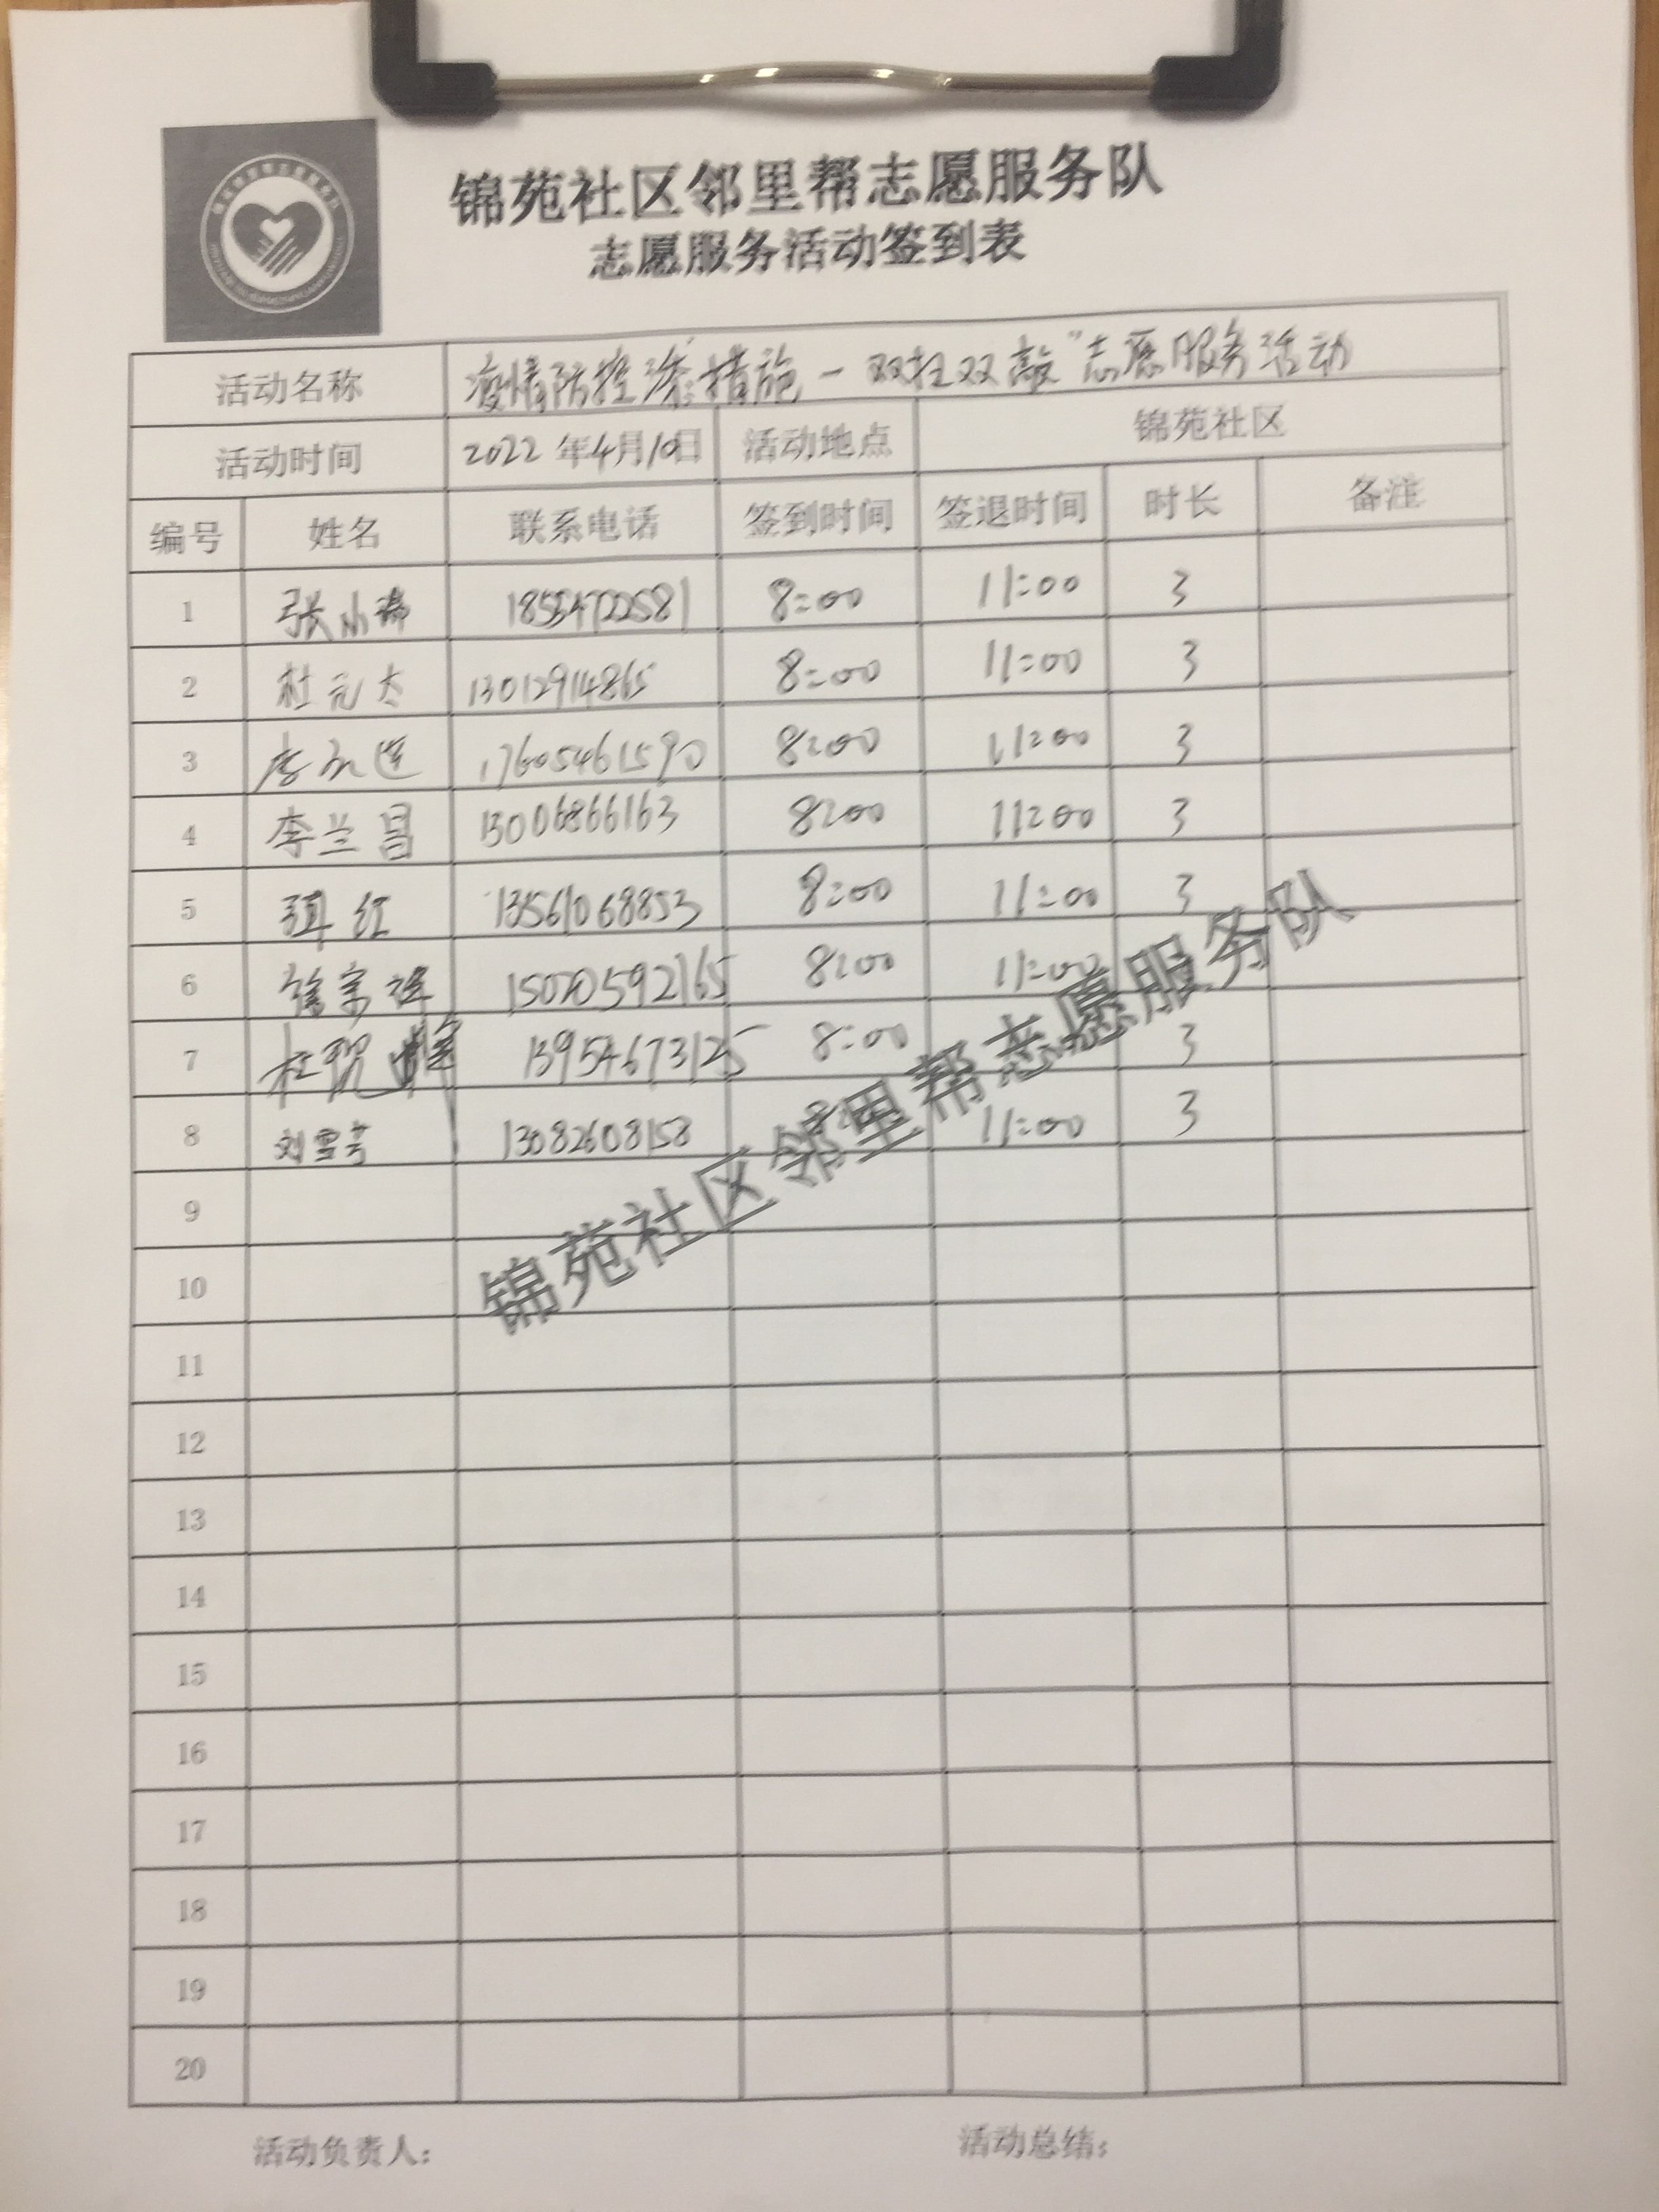 锦苑社区邻里帮志愿服务队
志愿服务活动签到表
活动名称 疫情防控 措施一双扫双敲"志愿服务活动
活动时间 2022年4月10日 活动地点 锦苑社区
编号 姓名 联系电话 签到时间 签退时间 时长 备注
1 张小 18554722581 8:00 11:00 3
2 杜元 13012914865 8:00 11:00 3
3 17605461590 8:00 11:00 3
4 李兰昌 13006866163 8:00 11:00 3
5 红 13561068853 8:00 11:00 3
6 徐宗祥 8:00 11:00
7 杜 13954673125 8:00 3
8 刘雪芳 13082608158 11:00 3
锦苑社区邻里帮志愿服务队
9
10
11
12
13
14
15
16
17
18
19
20
活动负责人: 活动总结: